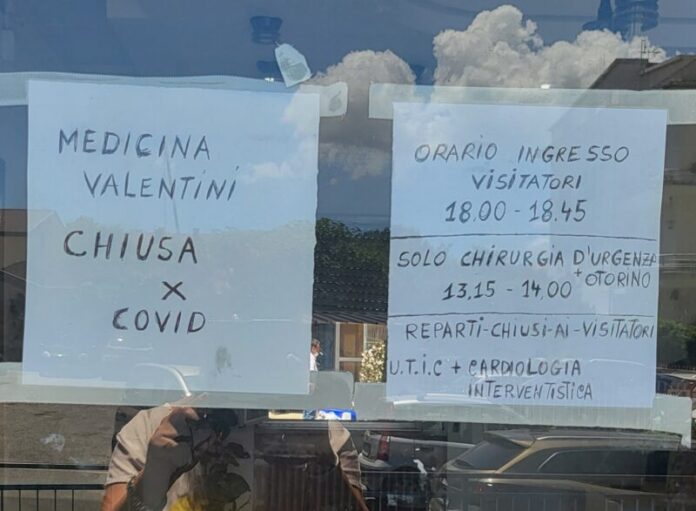 MEDICINA
VALENTINI
CHIUSA
X
COVID
ORARIO INGRESSO
VISITATORI
18.00 - 18.45
SOLO CHIRURGIA D'URGENZA
+ OTORINO
13,15 - 14,00
REPARTI-CHIUSI-AI-VISITATORI
U.T.i.C + CARDIOLOGIA
INTERVENTISTICA